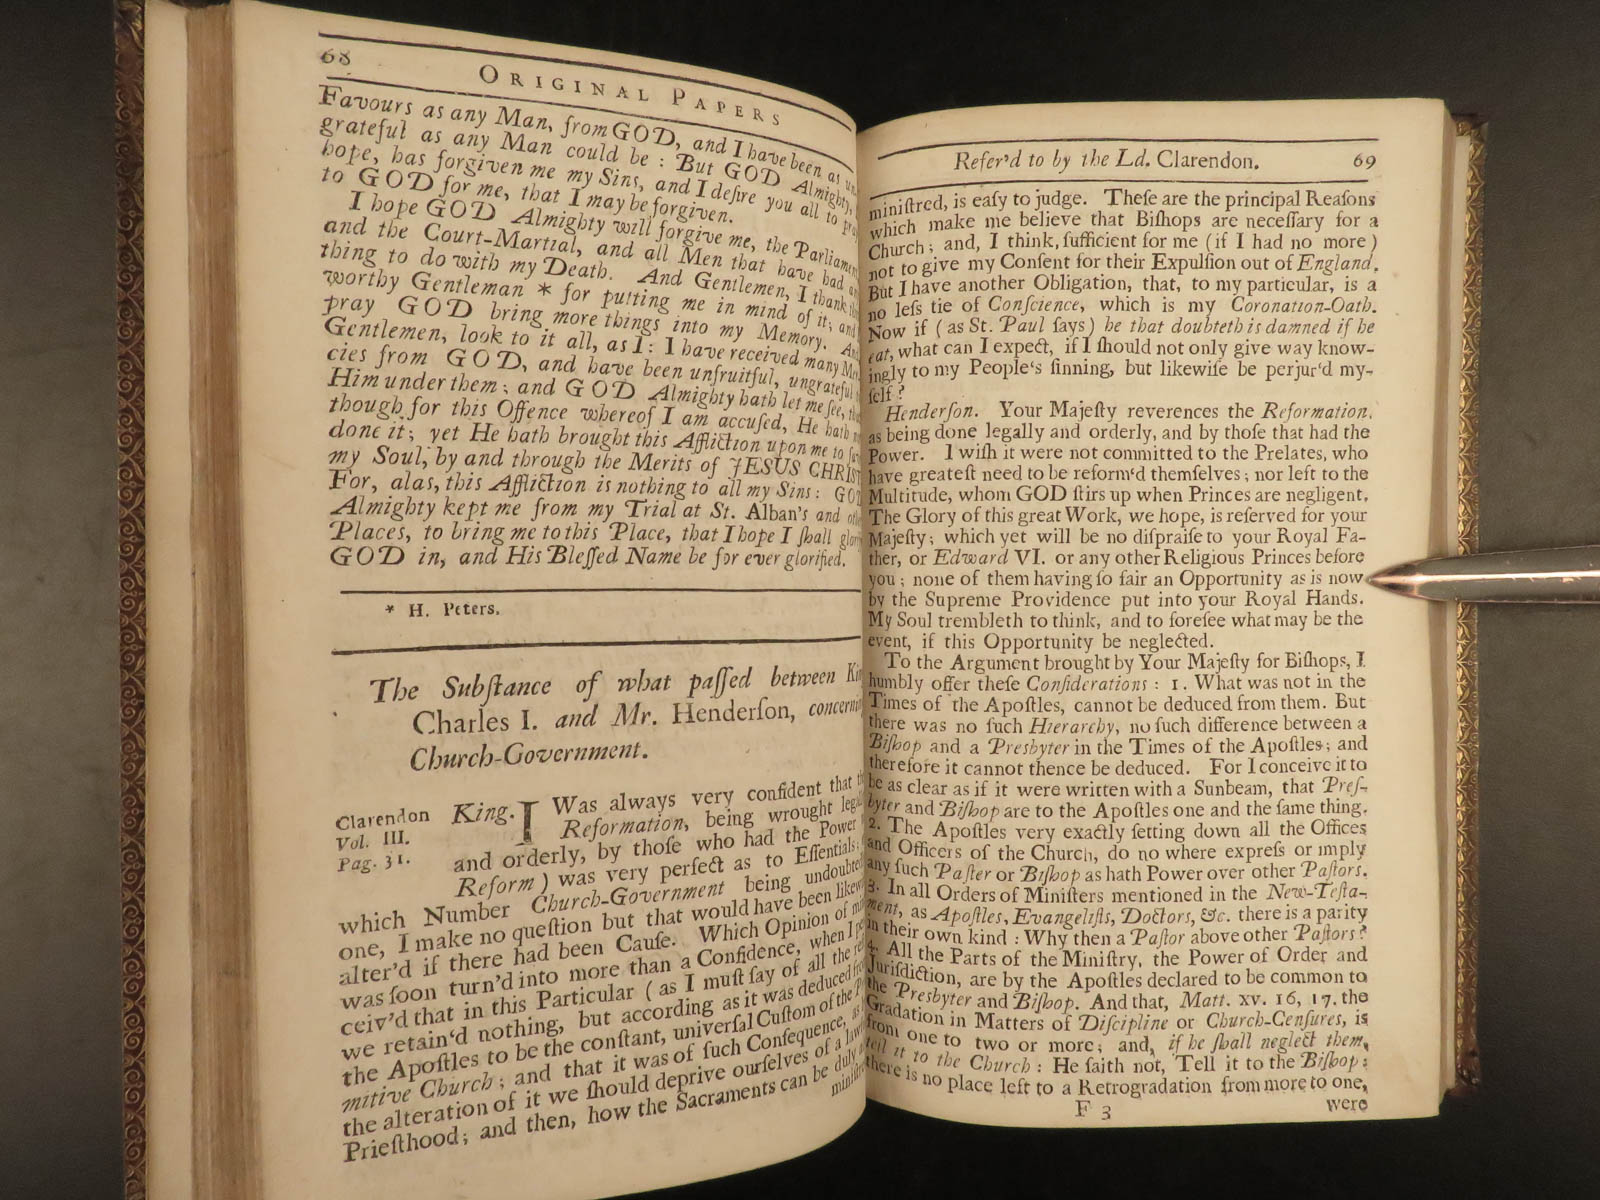 68
ORIGINAL PAPERS
Favours as any Man, from GOD, and I have been as un-
grateful as any Man could be : But GOD Almighty, I
hope, has forgiven me my Sins, and I desire you all to pray
to GOD for me, that I may be forgiven.
I hope GOD Almighty will forgive me, the Parliament
and the Court-Martial, and all Men that have had any
thing to do with my Death. And Gentlemen, I thank this
worthy Gentleman * for putting me in mind of it; and
pray GOD bring more things into my Memory. And
Gentlemen, look to it all, as I : I have received many Mer-
cies from GOD, and have been unfruitful, ungrateful to
Him under them; and GOD Almighty hath let me see, that
though for this Offence whereof I am accused, He hath not
done it; yet He hath brought this Affliction upon me to
my Soul, by and through the Merits of JESUS CHRIST
For, alas, this Affliction is nothing to all my Sins : GOD
Almighty kept me from my Trial at St. Alban's and other
Places, to bring me to this Place, that I hope I shall glorify
GOD in, and His Blessed Name be for ever glorified.
* H. Peters.
The Substance of what passed between King
Charles I. and Mr. Henderson, concerning
Church-Government.
Clarendon
Vol. III.
Pag. 31.
King. I Was always very confident that the
Reformation, being wrought legally
and orderly, by those who had the Power
Reform) was very perfect as to Essentials;
which Number Church-Government being undoubtedly
one, I make no question but that would have been likewise
alter'd if there had been Cause. Which Opinion of mine
was soon turn'd into more than a Confidence, when I per-
ceiv'd that in this Particular (as I must say of all the rest)
we retain'd nothing, but according as it was deduced from
the Apostles to be the constant, universal Custom of the Pri-
mitive Church; and that it was of such Consequence, as
the alteration of it we should deprive ourselves of a lawful
Priesthood; and then, how the Sacraments can be duly
ministred
Refer'd to by the Ld. Clarendon. 69
ministred, is easy to judge. These are the principal Reasons
which make me believe that Bishops are necessary for a
Church; and, I think, sufficient for me (if I had no more)
not to give my Consent for their Expulsion out of England.
But I have another Obligation, that, to my particular, is a
no less tie of Conscience, which is my Coronation-Oath.
Now if (as St. Paul says) he that doubteth is damned if he
eat, what can I expect, if I should not only give way know-
ingly to my People's sinning, but likewise be perjur'd my-
self ?
Henderson. Your Majesty reverences the Reformation,
as being done legally and orderly, and by those that had the
Power. I wish it were not committed to the Prelates, who
have greatest need to be reform'd themselves; nor left to the
Multitude, whom GOD stirs up when Princes are negligent.
The Glory of this great Work, we hope, is reserved for your
Majesty; which yet will be no dispraise to your Royal Fa-
ther, or Edward VI. or any other Religious Princes before
you; none of them having so fair an Opportunity as is now
by the Supreme Providence put into your Royal Hands.
My Soul trembleth to think, and to foresee what may be the
event, if this Opportunity be neglected.
To the Argument brought by Your Majesty for Bishops, I
humbly offer these Considerations : 1. What was not in the
Times of the Apostles, cannot be deduced from them. But
there was no such Hierarchy, no such difference between a
Bishop and a Presbyter in the Times of the Apostles; and
therefore it cannot thence be deduced. For I conceive it to
be as clear as if it were written with a Sunbeam, that Pres-
byter and Bishop are to the Apostles one and the same thing.
2. The Apostles very exactly setting down all the Offices
and Officers of the Church, do no where express or imply
any such Pastor or Bishop as hath Power over other Pastors.
3. In all Orders of Ministers mentioned in the New-Testa-
ment, as Apostles, Evangelists, Doctors, &c. there is a parity
in their own kind : Why then a Pastor above other Pastors ?
4. All the Parts of the Ministry, the Power of Order and
Jurisdiction, are by the Apostles declared to be common to
the Presbyter and Bishop. And that, Matt. xv. 16, 17. the
Gradation in Matters of Discipline or Church-Censures, is
from one to two or more; and, if he shall neglect them,
tell it to the Church : He saith not, Tell it to the Bishop :
there is no place left to a Retrogradation from more to one,
F 3 were